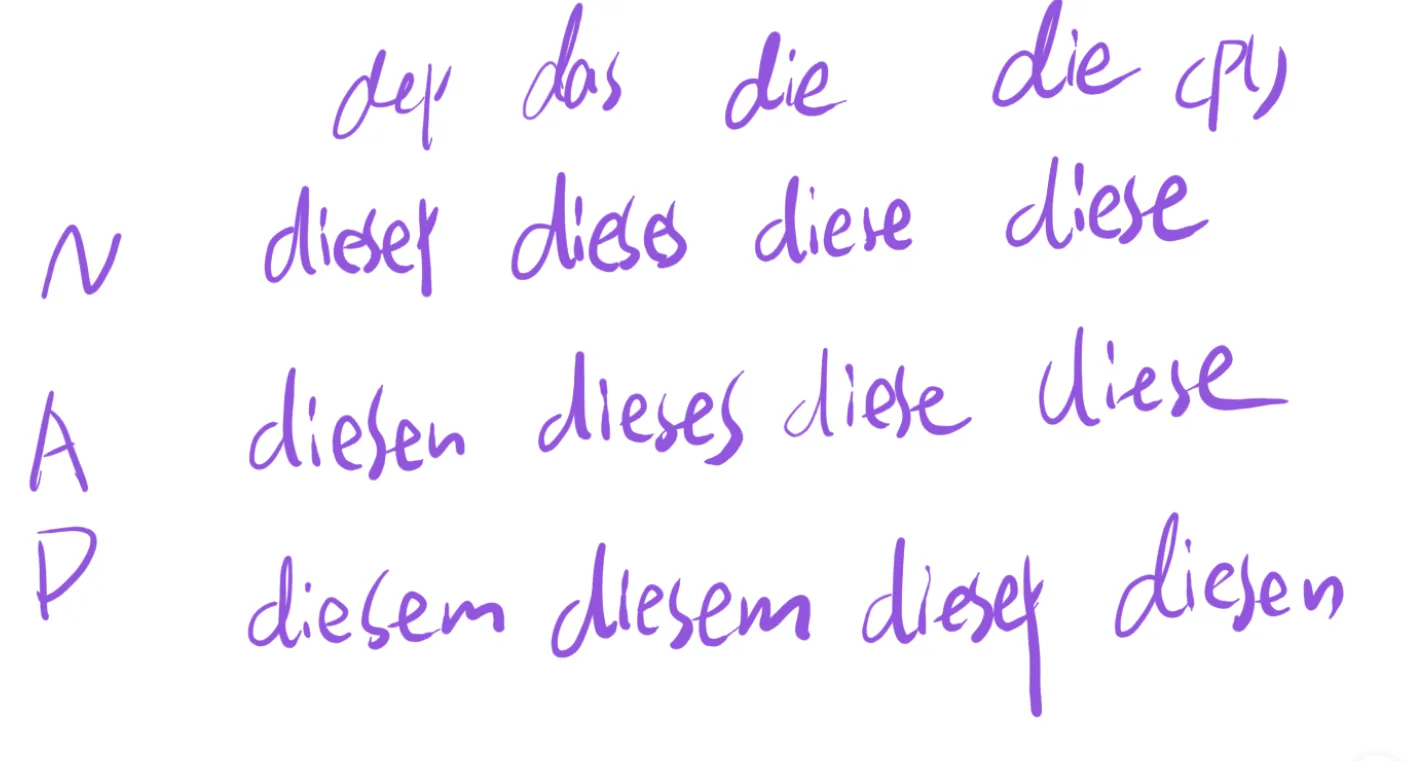 der das die die (pl)
N dieser dieses diese diese
A diesen dieses diese diese
D diesem diesem dieser diesen